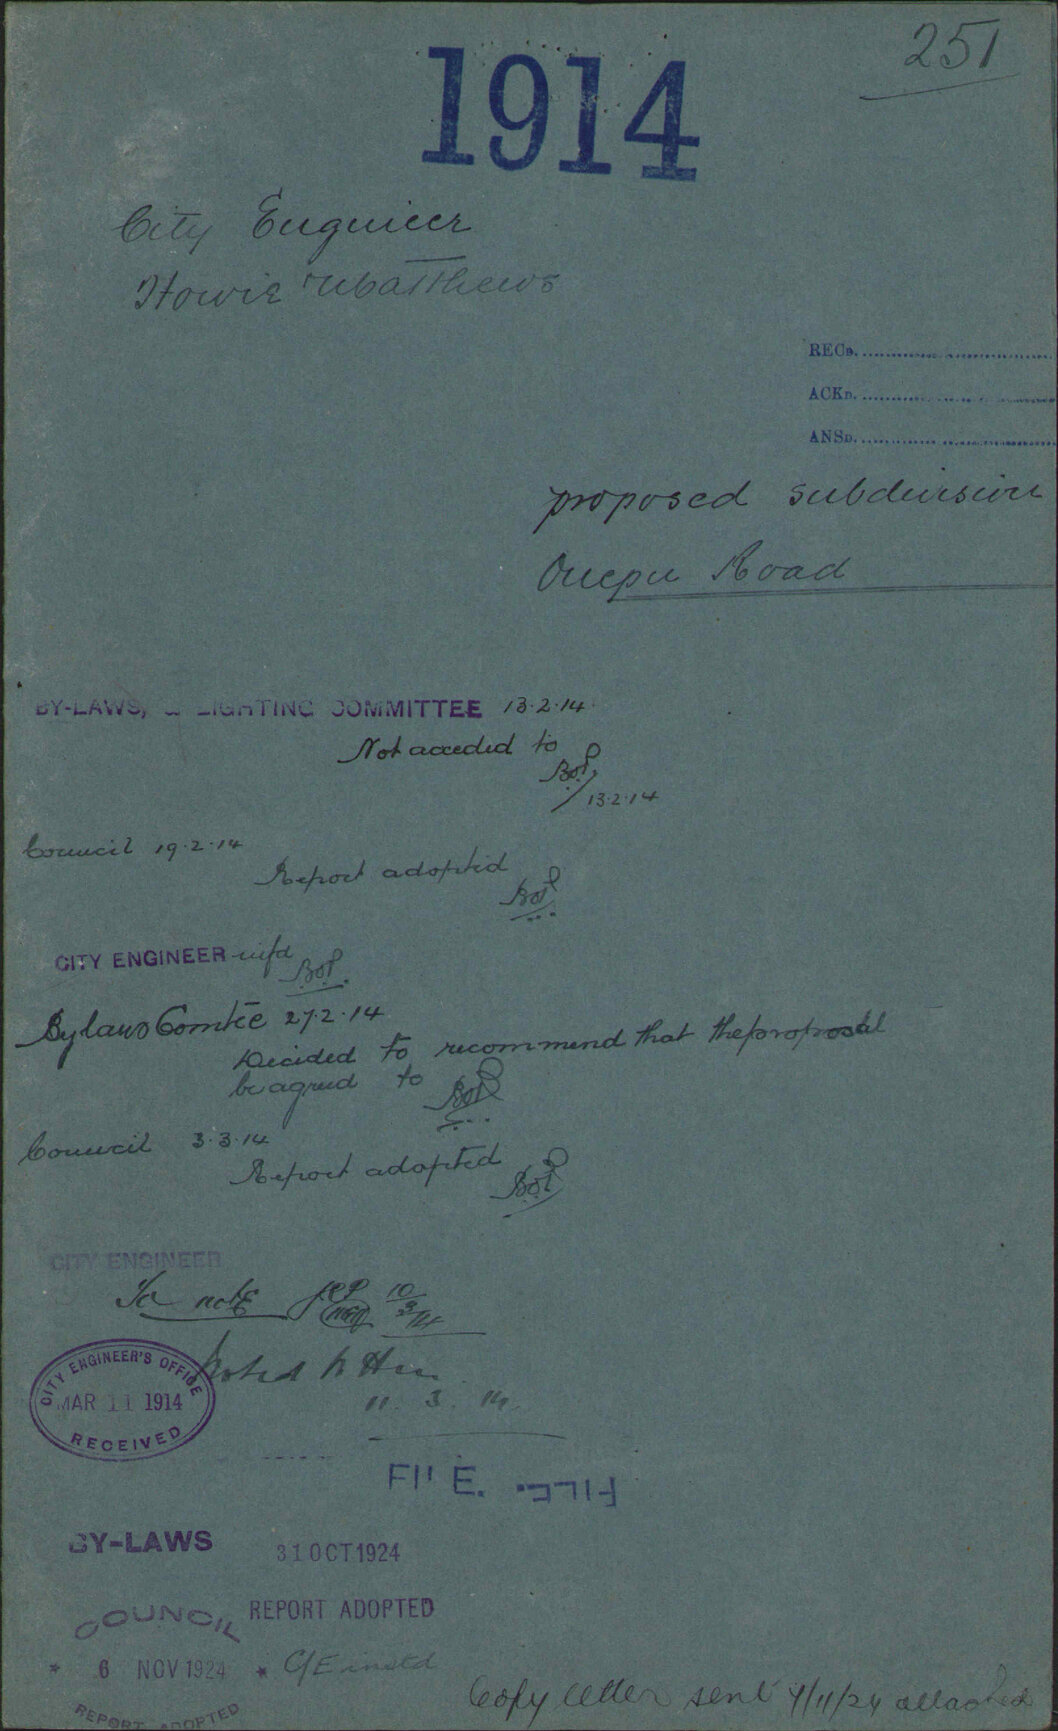 251
1914
City Engineer
Howie & Matthews
RECD.
ACKD.
ANSD.
proposed subdivision
Orepu Road
BY-LAWS, & LIGHTING COMMITTEE 13.2.14
Not acceded to
13.2.14
Council 19.2.14
Report adopted
CITY ENGINEER infd
Bylaws Comtee 27.2.14
Decided to recommend that the proposal
be agreed to
Council 3.3.14
Report adopted
CITY ENGINEER
To note 10/3/14
Noted
CITY ENGINEER'S OFFICE
MAR 11 1914
RECEIVED
11.3.14
FILE. FILE.
BY-LAWS 31 OCT 1924
REPORT ADOPTED
COUNCIL
* 6 NOV 1924 * C/E instd
REPORT ADOPTED
Copy letter sent 7/11/24 attached